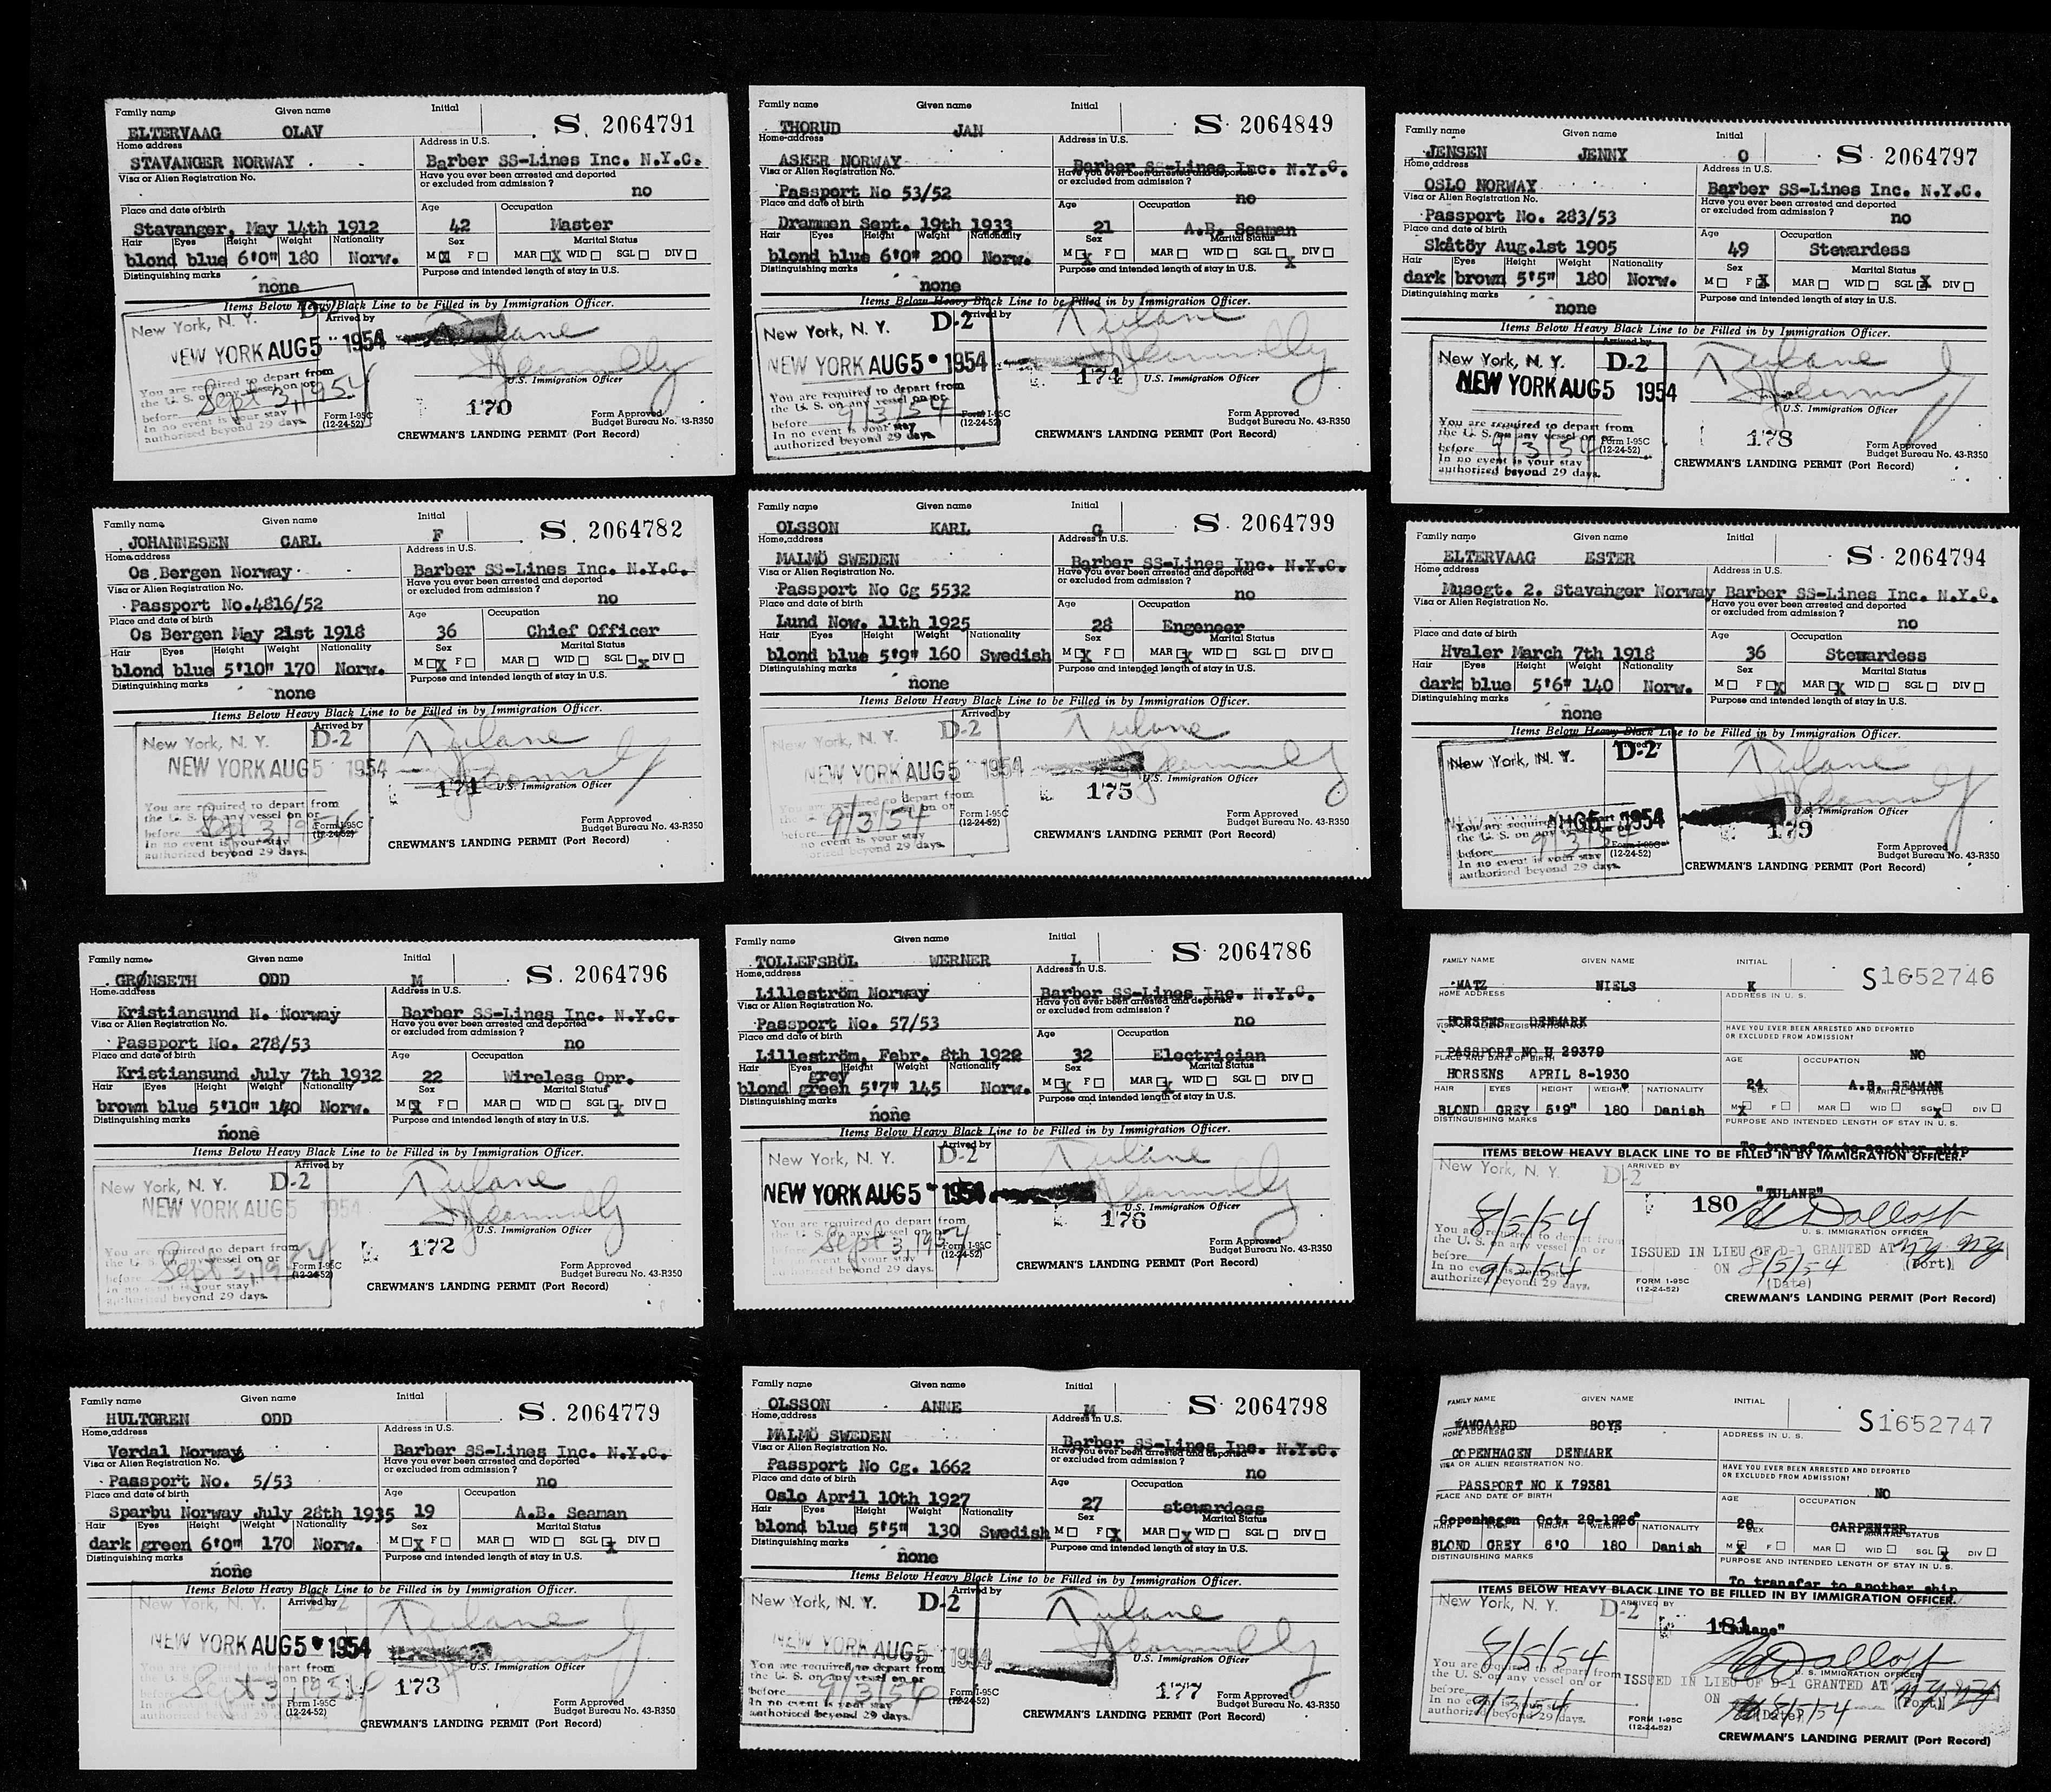 Family name Given name Initial S. 2064791
ELTERVAAG OLAV
Home address Address in U.S.
STAVANGER NORWAY Barber SS-Lines Inc. N.Y.C.
Visa or Alien Registration No. Have you ever been arrested and deported
or excluded from admission? no
Place and date of birth Age Occupation
Stavanger, May 14th 1912 42 Master
Hair Eyes Height Weight Nationality Sex Marital Status
blond blue 6'0" 180 Norw. M X F MAR X WID SGL DIV
Distinguishing marks Purpose and intended length of stay in U.S.
none
Items Below Heavy Black Line to be Filled in by Immigration Officer.
New York, N. Y. D-2 Arrived by
NEW YORK AUG 5 1954 Tulane
You are required to depart from
the U. S. on any vessel on or U.S. Immigration Officer
before Sept 3, 1954
In no event is your stay Form I-95C 170 Form Approved
authorized beyond 29 days. (12-24-52) Budget Bureau No. 43-R350
CREWMAN'S LANDING PERMIT (Port Record)
Family name Given name Initial S. 2064849
THORUD JAN
Home address Address in U.S.
ASKER NORWAY Barber SS-Lines Inc. N.Y.C.
Visa or Alien Registration No. Have you ever been arrested and deported
Passport No 53/52 or excluded from admission? no
Place and date of birth Age Occupation
Drammen Sept. 19th 1933 21 A.B. Seaman
Hair Eyes Height Weight Nationality Sex Marital Status
blond blue 6'0" 200 Norw. M X F MAR WID SGL X DIV
Distinguishing marks Purpose and intended length of stay in U.S.
none
Items Below Heavy Black Line to be Filled in by Immigration Officer.
New York, N. Y. D-2 Arrived by
NEW YORK AUG 5 1954 Tulane
You are required to depart from 174 U.S. Immigration Officer
the U. S. on any vessel on or
before 9/3/54 Form I-95C Form Approved
In no event is your stay (12-24-52) Budget Bureau No. 43-R350
authorized beyond 29 days. CREWMAN'S LANDING PERMIT (Port Record)
Family name Given name Initial S. 2064797
JENSEN JENNY O
Home address Address in U.S.
OSLO NORWAY Barber SS-Lines Inc. N.Y.C.
Visa or Alien Registration No. Have you ever been arrested and deported
Passport No. 283/53 or excluded from admission? no
Place and date of birth Age Occupation
Skåtöy Aug.1st 1905 49 Stewardess
Hair Eyes Height Weight Nationality Sex Marital Status
dark brown 5'5" 180 Norw. M F X MAR WID SGL X DIV
Distinguishing marks Purpose and intended length of stay in U.S.
none
Items Below Heavy Black Line to be Filled in by Immigration Officer.
New York, N. Y. D-2 Arrived by
NEW YORK AUG 5 1954 Tulane
U.S. Immigration Officer
You are required to depart from
the U. S. on any vessel on or 178
before 9/3/54 Form I-95C (12-24-52) Form Approved
In no event is your stay Budget Bureau No. 43-R350
authorized beyond 29 days. CREWMAN'S LANDING PERMIT (Port Record)
Family name Given name Initial S. 2064782
JOHANNESEN CARL F
Home address Address in U.S.
Os Bergen Norway Barber SS-Lines Inc. N.Y.C.
Visa or Alien Registration No. Have you ever been arrested and deported
Passport No.4816/52 or excluded from admission? no
Place and date of birth Age Occupation
Os Bergen May 21st 1918 36 Chief Officer
Hair Eyes Height Weight Nationality Sex Marital Status
blond blue 5'10" 170 Norw. M X F MAR WID SGL X DIV
Distinguishing marks Purpose and intended length of stay in U.S.
none
Items Below Heavy Black Line to be Filled in by Immigration Officer.
New York, N. Y. D-2 Arrived by
NEW YORK AUG 5 1954 Tulane
171 U.S. Immigration Officer
You are required to depart from
the U. S. on any vessel on or
before Sept 3, 1954 Form I-95C Form Approved
In no event is your stay (12-24-52) Budget Bureau No. 43-R350
authorized beyond 29 days. CREWMAN'S LANDING PERMIT (Port Record)
Family name Given name Initial S. 2064799
OLSSON KARL G
Home address Address in U.S.
MALMÖ SWEDEN Barber SS-Lines Inc. N.Y.C.
Visa or Alien Registration No. Have you ever been arrested and deported
Passport No Cg 5532 or excluded from admission? no
Place and date of birth Age Occupation
Lund Now. 11th 1925 28 Engeneer
Hair Eyes Height Weight Nationality Sex Marital Status
blond blue 5'9" 160 Swedish M X F MAR X WID SGL DIV
Distinguishing marks Purpose and intended length of stay in U.S.
none
Items Below Heavy Black Line to be Filled in by Immigration Officer.
New York, N. Y. D-2 Arrived by
NEW YORK AUG 5 1954 Tulane
175 U.S. Immigration Officer
You are required to depart from
the U. S. on any vessel on or
before 9/3/54 Form I-95C Form Approved
no event is your stay (12-24-52) Budget Bureau No. 43-R350
authorized beyond 29 days. CREWMAN'S LANDING PERMIT (Port Record)
Family name Given name Initial S. 2064794
ELTERVAAG ESTER
Home address Address in U.S.
Musegt. 2. Stavanger Norway Barber SS-Lines Inc. N.Y.C.
Visa or Alien Registration No. Have you ever been arrested and deported
or excluded from admission? no
Place and date of birth Age Occupation
Hvaler March 7th 1918 36 Stewardess
Hair Eyes Height Weight Nationality Sex Marital Status
dark blue 5'6" 140 Norw. M F X MAR X WID SGL DIV
Distinguishing marks Purpose and intended length of stay in U.S.
none
Items Below Heavy Black Line to be Filled in by Immigration Officer.
New York, N. Y. D-2
Tulane
U.S. Immigration Officer
You are required AUG 5 1954 179
the U. S. on any
before 9/3/5 Form I-95C Form Approved
In no event is your stay (12-24-52) Budget Bureau No. 43-R350
authorized beyond 29 days. CREWMAN'S LANDING PERMIT (Port Record)
Family name Given name Initial S. 2064796
GRØNSETH ODD M
Home address Address in U.S.
Kristiansund N. Norway Barber SS-Lines Inc. N.Y.C.
Visa or Alien Registration No. Have you ever been arrested and deported
Passport No. 278/53 or excluded from admission? no
Place and date of birth Age Occupation
Kristiansund July 7th 1932 22 Wireless Opr.
Hair Eyes Height Weight Nationality Sex Marital Status
brown blue 5'10" 140 Norw. M X F MAR WID SGL X DIV
Distinguishing marks Purpose and intended length of stay in U.S.
none
Items Below Heavy Black Line to be Filled in by Immigration Officer.
New York, N. Y. D-2 Arrived by
NEW YORK AUG 5 1954 Tulane
U.S. Immigration Officer
You are required to depart from 172
the U. S. on any vessel on or
before Sept 3, 1954 Form I-95C Form Approved
In no event is your stay (12-24-52) Budget Bureau No. 43-R350
authorized beyond 29 days. CREWMAN'S LANDING PERMIT (Port Record)
Family name Given name Initial S. 2064786
TOLLEFSBÖL WERNER L
Home address Address in U.S.
Lilleström Norway Barber SS-Lines Inc. N.Y.C.
Visa or Alien Registration No. Have you ever been arrested and deported
Passport No. 57/53 or excluded from admission? no
Place and date of birth Age Occupation
Lilleström, Febr. 8th 1922 32 Electrician
Hair Eyes grey Height Weight Nationality Sex Marital Status
blond green 5'7" 145 Norw. M X F MAR X WID SGL DIV
Distinguishing marks Purpose and intended length of stay in U.S.
none
Items Below Heavy Black Line to be Filled in by Immigration Officer.
New York, N. Y. D-2 Arrived by
NEW YORK AUG 5 1954 Tulane
176 U.S. Immigration Officer
You are required to depart from
the U. S. on any vessel on or
before Sept 3, 1954 Form I-95C Form Approved
In no event is your stay (12-24-52) Budget Bureau No. 43-R350
authorized beyond 29 days. CREWMAN'S LANDING PERMIT (Port Record)
FAMILY NAME GIVEN NAME INITIAL S1652746
MATZ NIELS K
HOME ADDRESS ADDRESS IN U. S.
HORSENS DENMARK
VISA OR ALIEN REGISTRATION NO. HAVE YOU EVER BEEN ARRESTED AND DEPORTED
PASSPORT NO U 29379 OR EXCLUDED FROM ADMISSION? NO
PLACE AND DATE OF BIRTH AGE OCCUPATION
HORSENS APRIL 8-1930 24 A.B. SEAMAN
HAIR EYES HEIGHT WEIGHT NATIONALITY SEX MARITAL STATUS
BLOND GREY 5'9" 180 Danish M X F MAR WID SGL X DIV
DISTINGUISHING MARKS PURPOSE AND INTENDED LENGTH OF STAY IN U. S.
To transfer to another ship
ITEMS BELOW HEAVY BLACK LINE TO BE FILLED IN BY IMMIGRATION OFFICER.
New York, N. Y. D-2 ARRIVED BY
8/5/54 180 "TULANE"
You are required to depart from U. S. IMMIGRATION OFFICER
the U. S. on any vessel on or ISSUED IN LIEU OF D-1 GRANTED AT NY NY
before 9/2/54 ON 8/5/54 (Port)
In no event is your stay FORM I-95C (Date)
authorized beyond 29 days. (12-24-52) CREWMAN'S LANDING PERMIT (Port Record)
Family name Given name Initial S. 2064779
HULTGREN ODD
Home address Address in U.S.
Verdal Norway Barber SS-Lines Inc. N.Y.C.
Visa or Alien Registration No. Have you ever been arrested and deported
Passport No. 5/53 or excluded from admission? no
Place and date of birth Age Occupation
Sparbu Norway July 28th 1935 19 A.B. Seaman
Hair Eyes Height Weight Nationality Sex Marital Status
dark green 6'0" 170 Norw. M X F MAR WID SGL X DIV
Distinguishing marks Purpose and intended length of stay in U.S.
none
Items Below Heavy Black Line to be Filled in by Immigration Officer.
New York, N. Y. D-2 Arrived by
NEW YORK AUG 5 1954 Tulane
U.S. Immigration Officer
You are required to depart from 173
the U. S. on any vessel on or
before Sept 3, 1954 Form I-95C Form Approved
(12-24-52) Budget Bureau No. 43-R350
authorized beyond 29 days. CREWMAN'S LANDING PERMIT (Port Record)
Family name Given name Initial S. 2064798
OLSSON ANNE M
Home address Address in U.S.
MALMÖ SWEDEN Barber SS-Lines Inc. N.Y.C.
Visa or Alien Registration No. Have you ever been arrested and deported
Passport No Cg. 1662 or excluded from admission? no
Place and date of birth Age Occupation
Oslo April 10th 1927 27 stewardess
Hair Eyes Height Weight Nationality Sex Marital Status
blond blue 5'5" 130 Swedish M F X MAR X WID SGL DIV
Distinguishing marks Purpose and intended length of stay in U.S.
none
Items Below Heavy Black Line to be Filled in by Immigration Officer.
New York, N. Y. D-2 Arrived by
NEW YORK AUG 5 1954 Tulane
U.S. Immigration Officer
You are required to depart from
the U. S. on any vessel on or 177
before 9/3/54 Form I-95C Form Approved
In no event is your stay (12-24-52) Budget Bureau No. 43-R350
authorized beyond 29 days. CREWMAN'S LANDING PERMIT (Port Record)
FAMILY NAME GIVEN NAME INITIAL S1652747
BOYE
HOME ADDRESS ADDRESS IN U. S.
COPENHAGEN DENMARK
VISA OR ALIEN REGISTRATION NO. HAVE YOU EVER BEEN ARRESTED AND DEPORTED
PASSPORT NO K 79381 OR EXCLUDED FROM ADMISSION? NO
PLACE AND DATE OF BIRTH AGE OCCUPATION
Copenhagen Oct. 29-1926 28 CARPENTER
HAIR EYES HEIGHT WEIGHT NATIONALITY SEX MARITAL STATUS
BLOND GREY 6'0 180 Danish M X F MAR WID SGL X DIV
DISTINGUISHING MARKS PURPOSE AND INTENDED LENGTH OF STAY IN U. S.
To transfer to another ship
ITEMS BELOW HEAVY BLACK LINE TO BE FILLED IN BY IMMIGRATION OFFICER.
New York, N. Y. D-2 ARRIVED BY
8/5/54 181 "Tulane"
You are required to depart from U. S. IMMIGRATION OFFICER
the U. S. on any vessel on or ISSUED IN LIEU OF D-1 GRANTED AT NY NY
before 9/3/54 ON 8/5/54 (Port)
In no event is your stay FORM I-95C (Date)
authorized beyond 29 days. (12-24-52) CREWMAN'S LANDING PERMIT (Port Record)